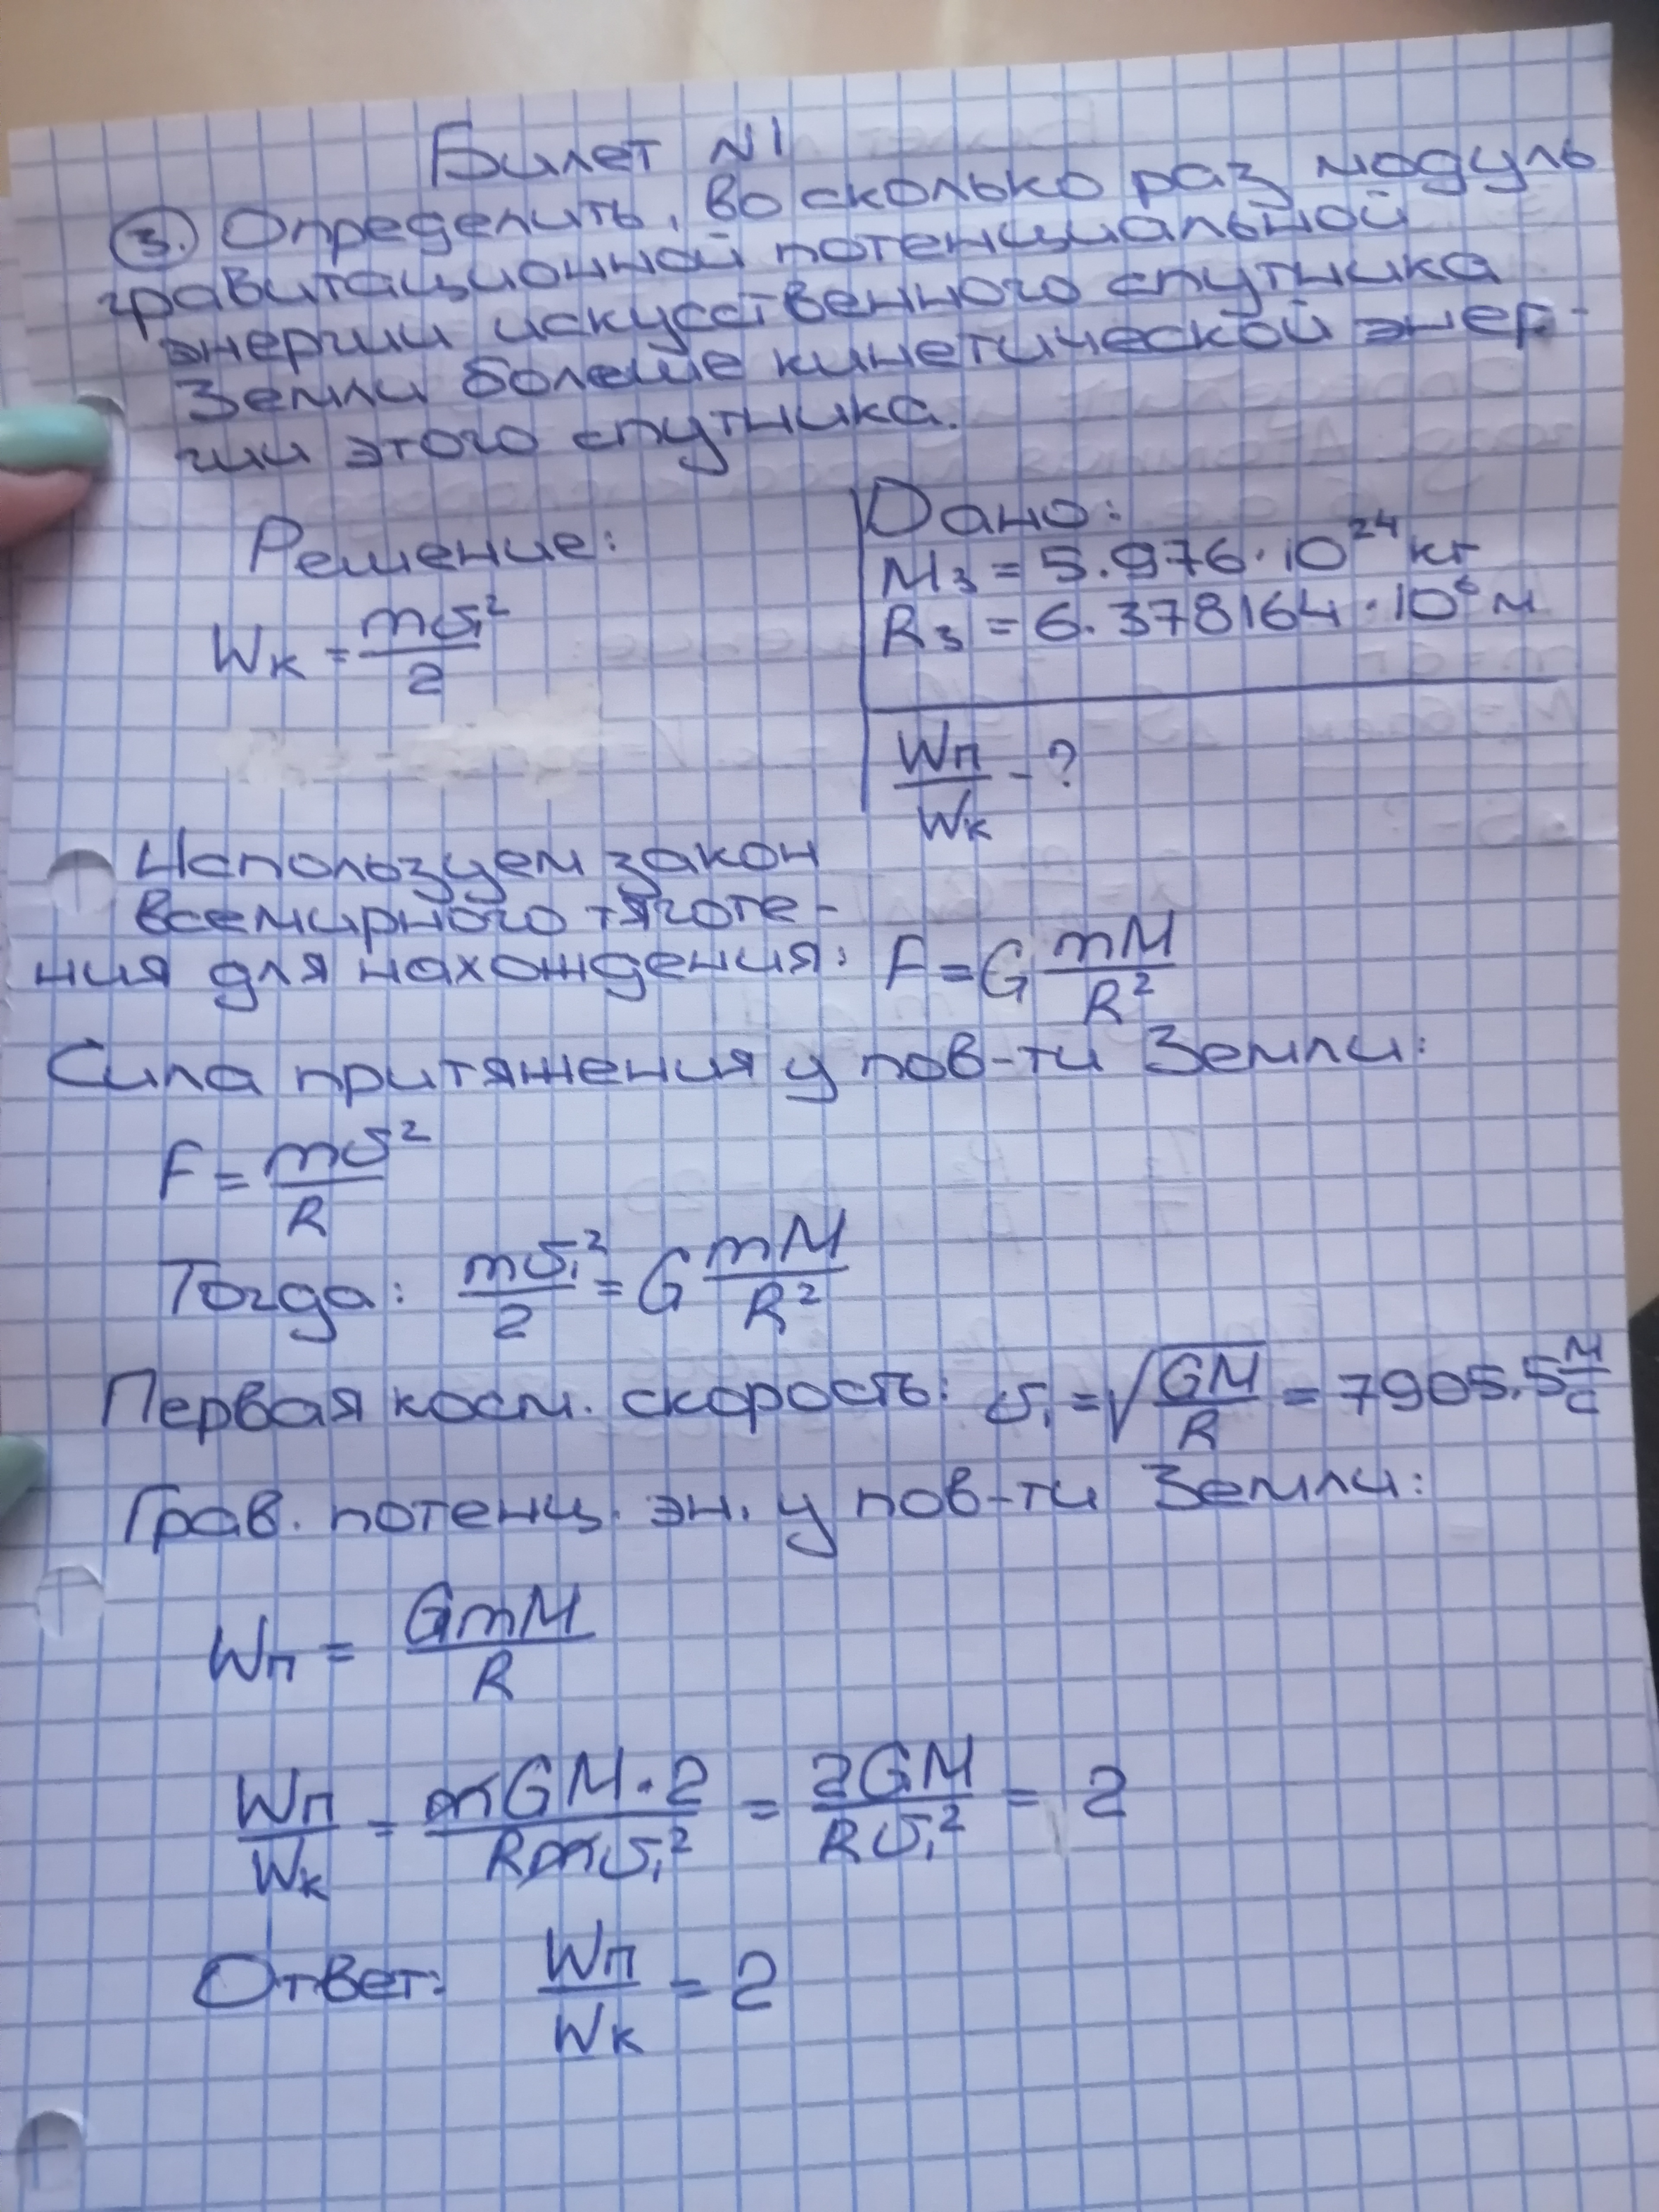 Билет №1
③. Определить, во сколько раз модуль
гравитационной потенциальной
энергии искусственного спутника
Земли больше кинетической энер-
гии этого спутника.
Решение:
Дано:
Mз = 5.976·10²⁴ кг
Rз = 6.378164·10⁶ м
Wк = mv₁²/2
Wп/Wк - ?
Используем закон
всемирного тяготе-
ния для нахождения: F = G mM/R²
Сила притяжения у пов-ти Земли:
F = mv²/R
Тогда: mv₁²/2 = G mM/R²
Первая косм. скорость: v₁ = √(GM/R) = 7905.5 м/с
Грав. потенц. эн. у пов-ти Земли:
Wп = GmM/R
Wп/Wк = mGM·2/Rmv₁² = 2GM/Rv₁² = 2
Ответ: Wп/Wк = 2